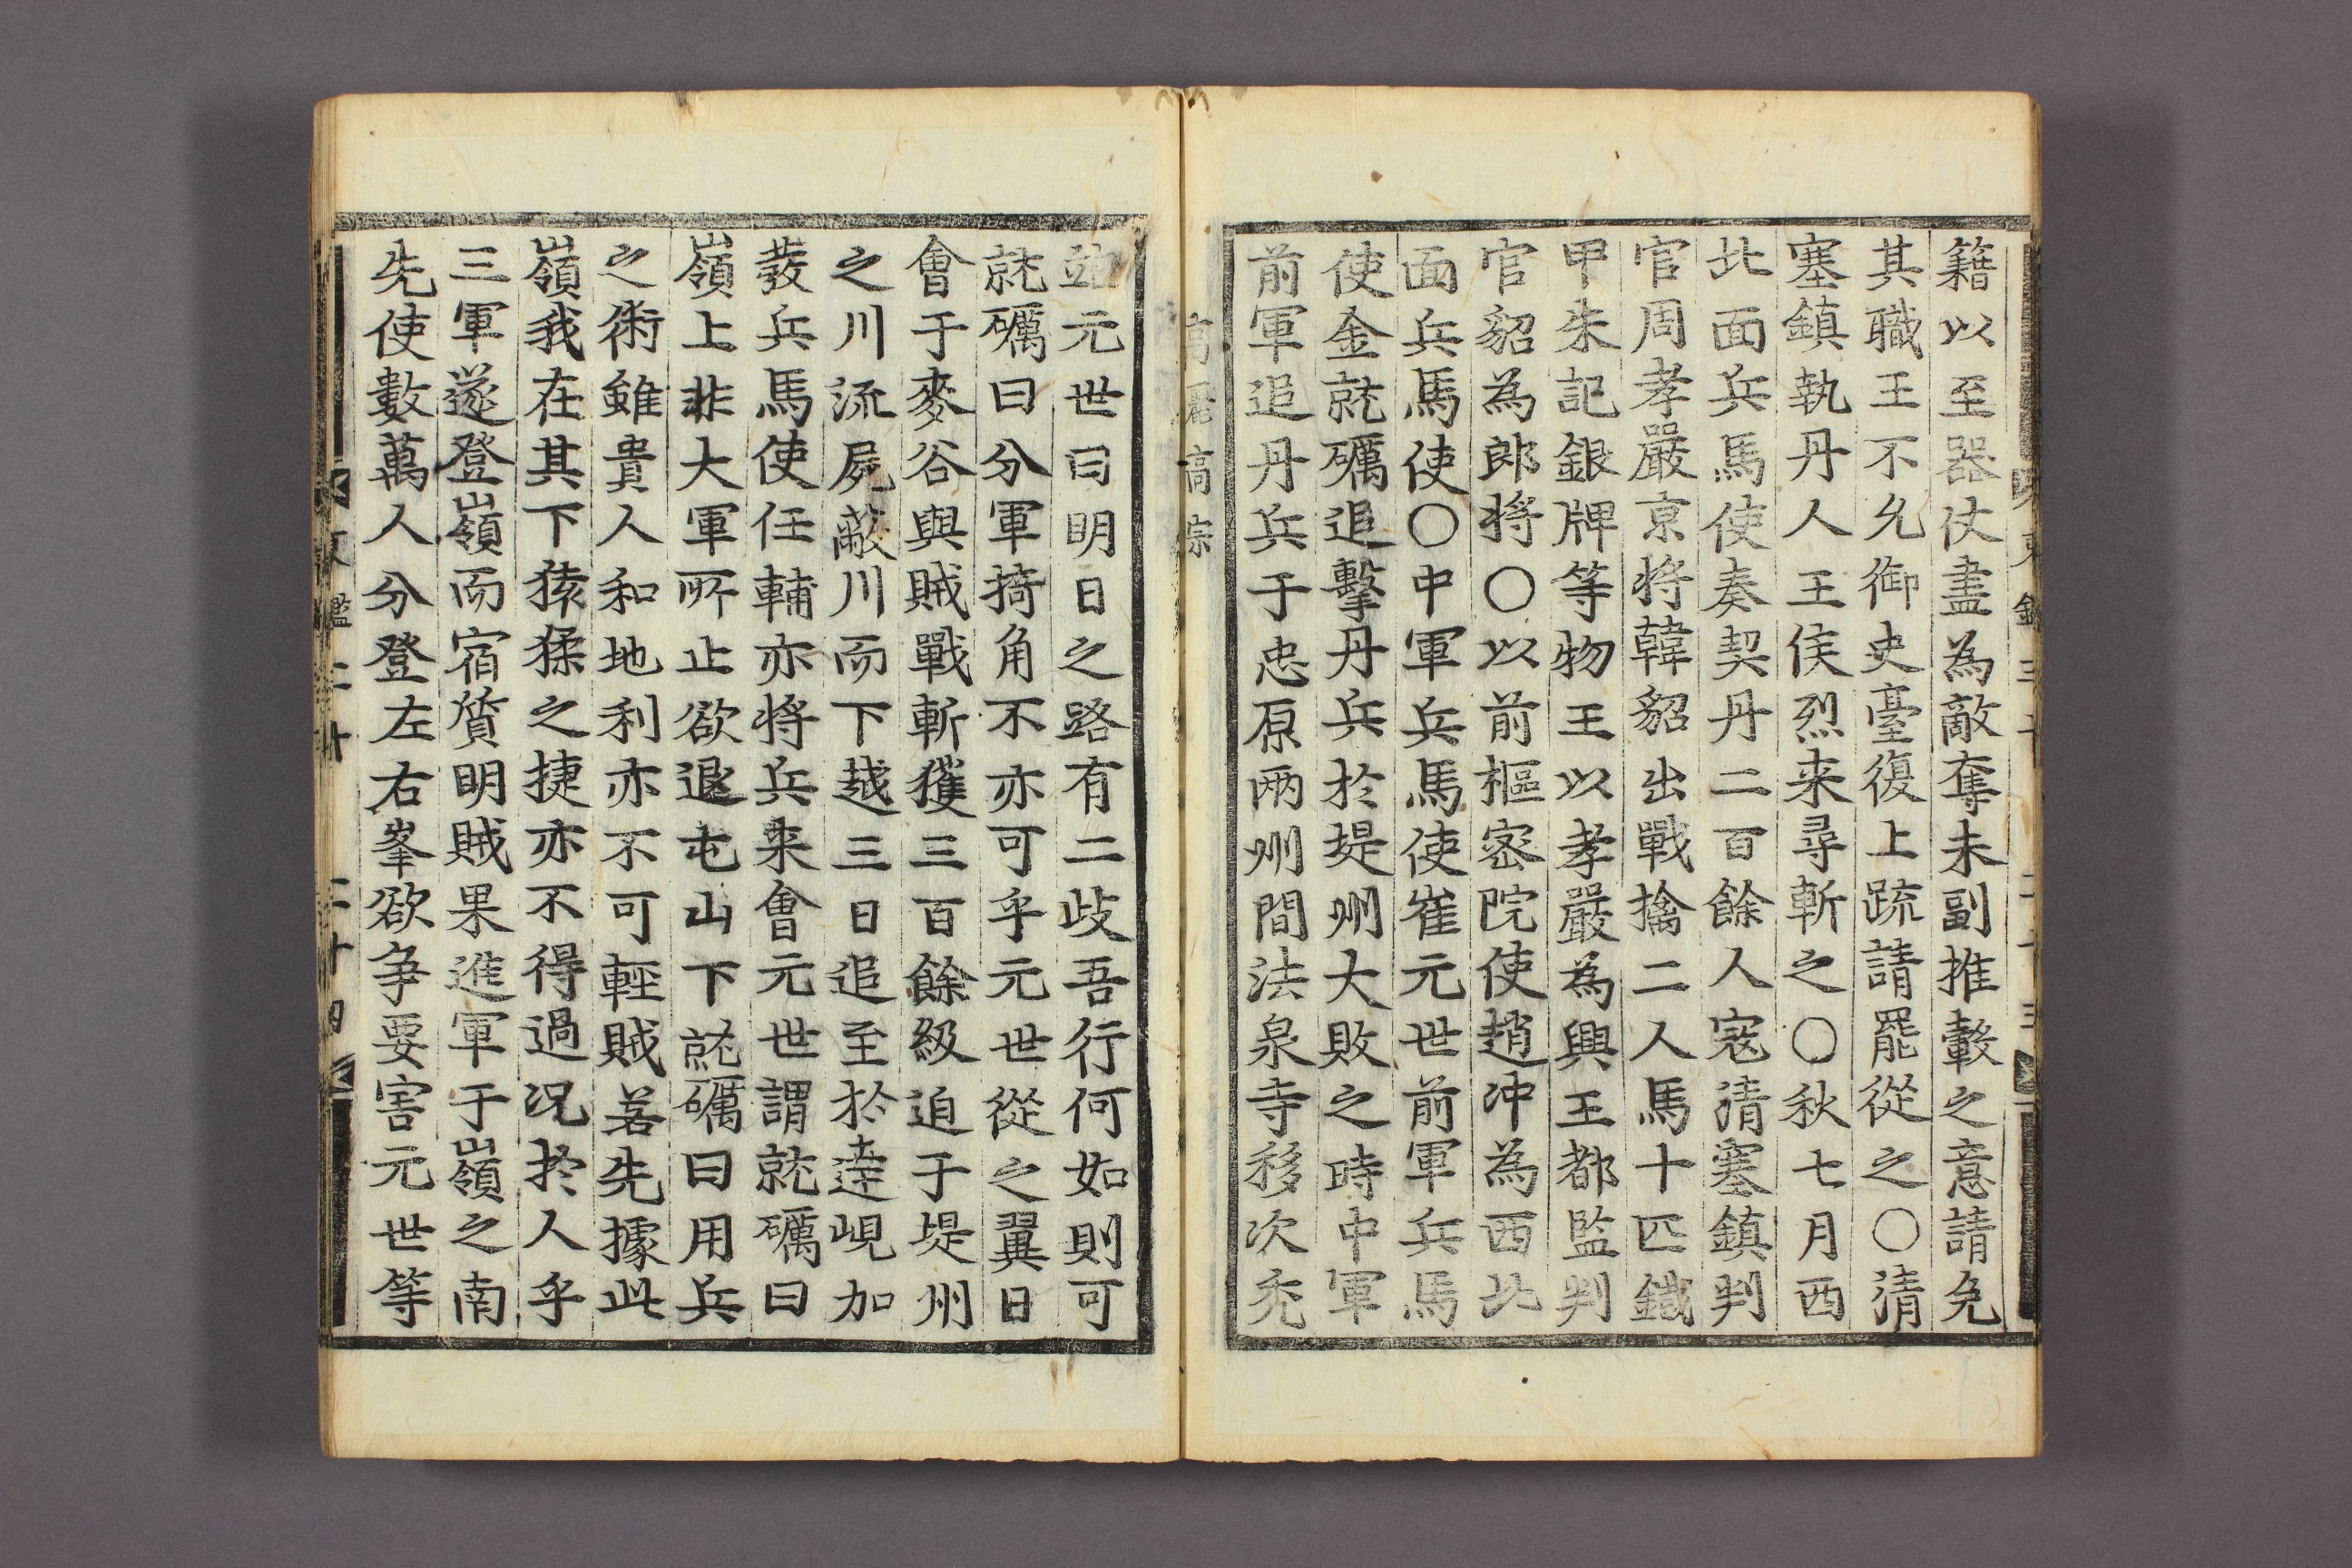 籍以至器仗盡為敵奪未副推轂之意請免
其職王不允御史臺復上疏請罷從之○淸
塞鎮執丹人王侯烈来尋斬之○秋七月西
北面兵馬使奏契丹二百餘人寇淸塞鎮判
官周孝嚴京将韓貂出戰擒二人馬十匹鐵
甲朱記銀牌等物王以孝嚴為興王都監判
官貂為郎将○以前樞密院使趙冲為西北
面兵馬使○中軍兵馬使崔元世前軍兵馬
使金就礪追擊丹兵於堤州大敗之時中軍
前軍追丹兵于忠原两州間法泉寺移次禿
高麗高宗
岾元世曰明日之路有二歧吾行何如則可
就礪曰分軍掎角不亦可乎元世從之翼日
會于麥谷與賊戰斬獲三百餘級迫于堤州
之川流屍蔽川而下越三日追至於達峴加
發兵馬使任輔亦将兵来會元世謂就礪曰
嶺上非大軍所止欲退屯山下就礪曰用兵
之術雖貴人和地利亦不可輕賊若先據此
嶺我在其下猿猱之捷亦不得過况於人乎
三軍遂登嶺而宿質明賊果進軍于嶺之南
先使數萬人分登左右峯欲争要害元世等